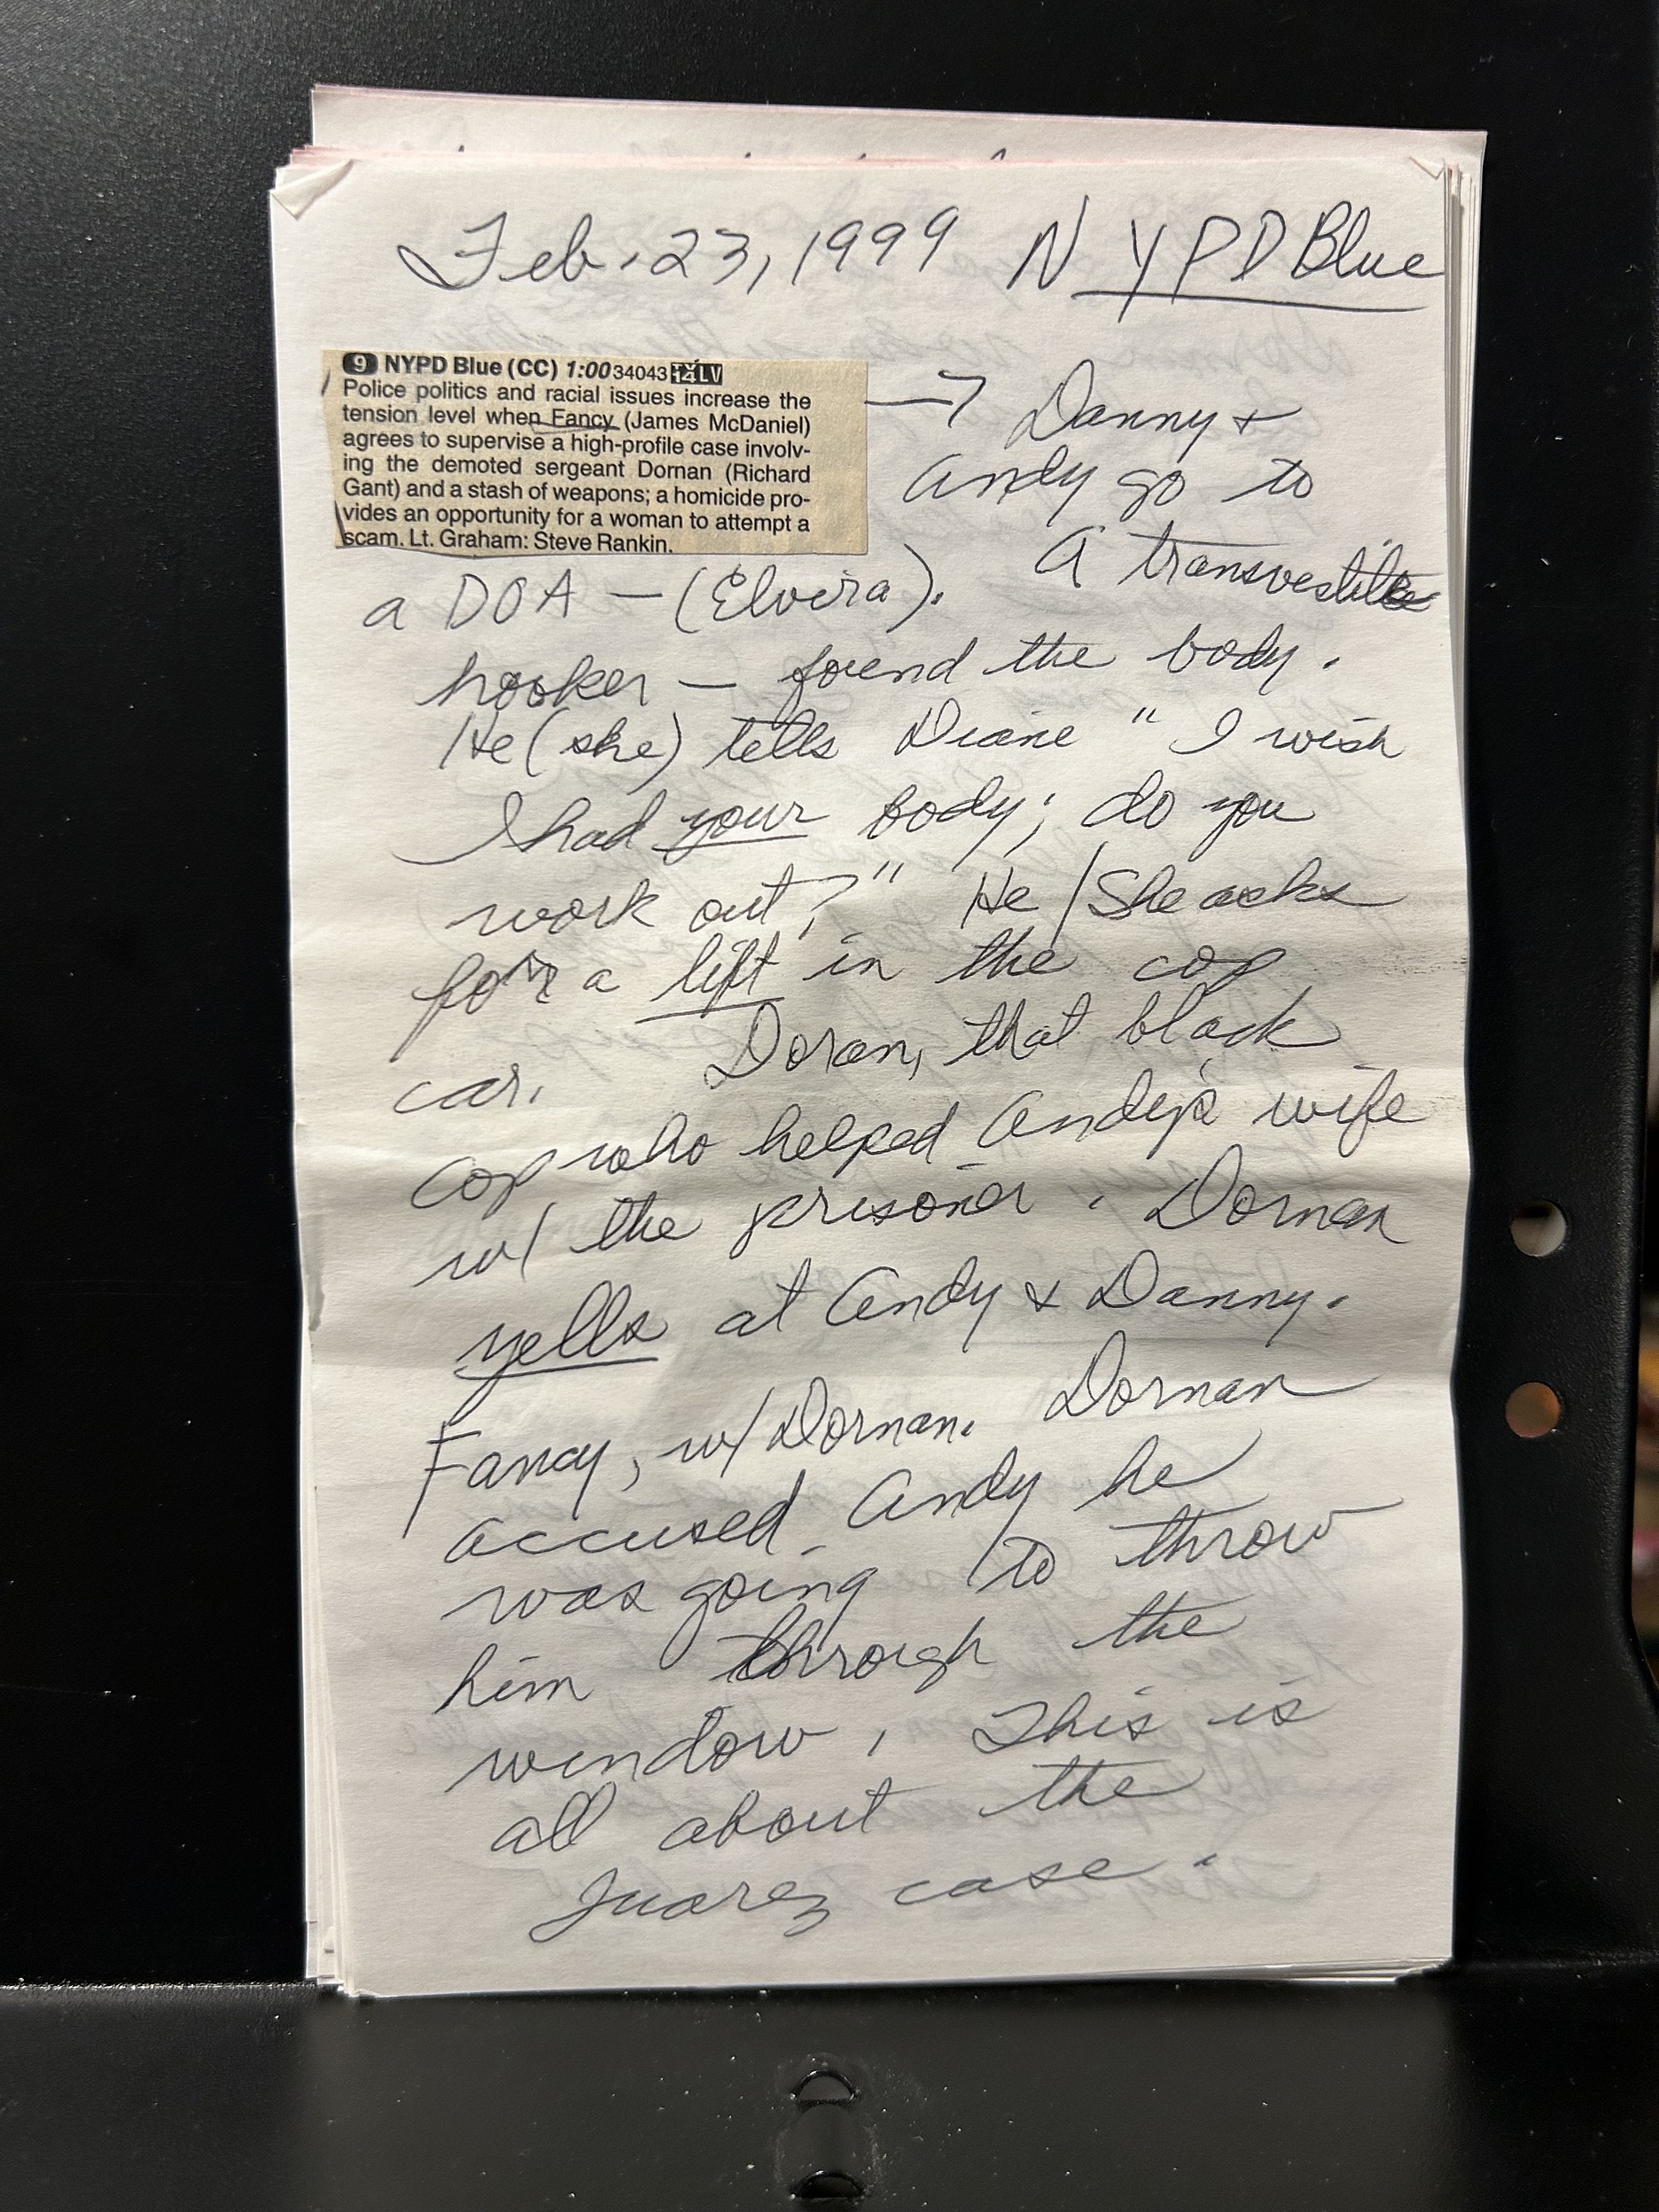 Feb. 23, 1999 NYPD Blue
9 NYPD Blue (CC) 1:00 34043
Police politics and racial issues increase the
tension level when Fancy (James McDaniel)
agrees to supervise a high-profile case involv-
ing the demoted sergeant Dornan (Richard
Gant) and a stash of weapons; a homicide pro-
vides an opportunity for a woman to attempt a
scam. Lt. Graham: Steve Rankin.
→ Danny +
Andy go to
a DOA — (Elvira). A transvestite
hooker — found the body.
He (she) tells Diane " I wish
I had your body; do you
work out?" He/She asks
for a lift in the cop
car. Doran, that black
cop who helped Andy's wife
w/ the prisoner. Dornan
yells at Andy & Danny.
Fancy, w/ Dornan. Dornan
accused Andy he
was going to throw
him through the
window. This is
all about the
Juarez case.